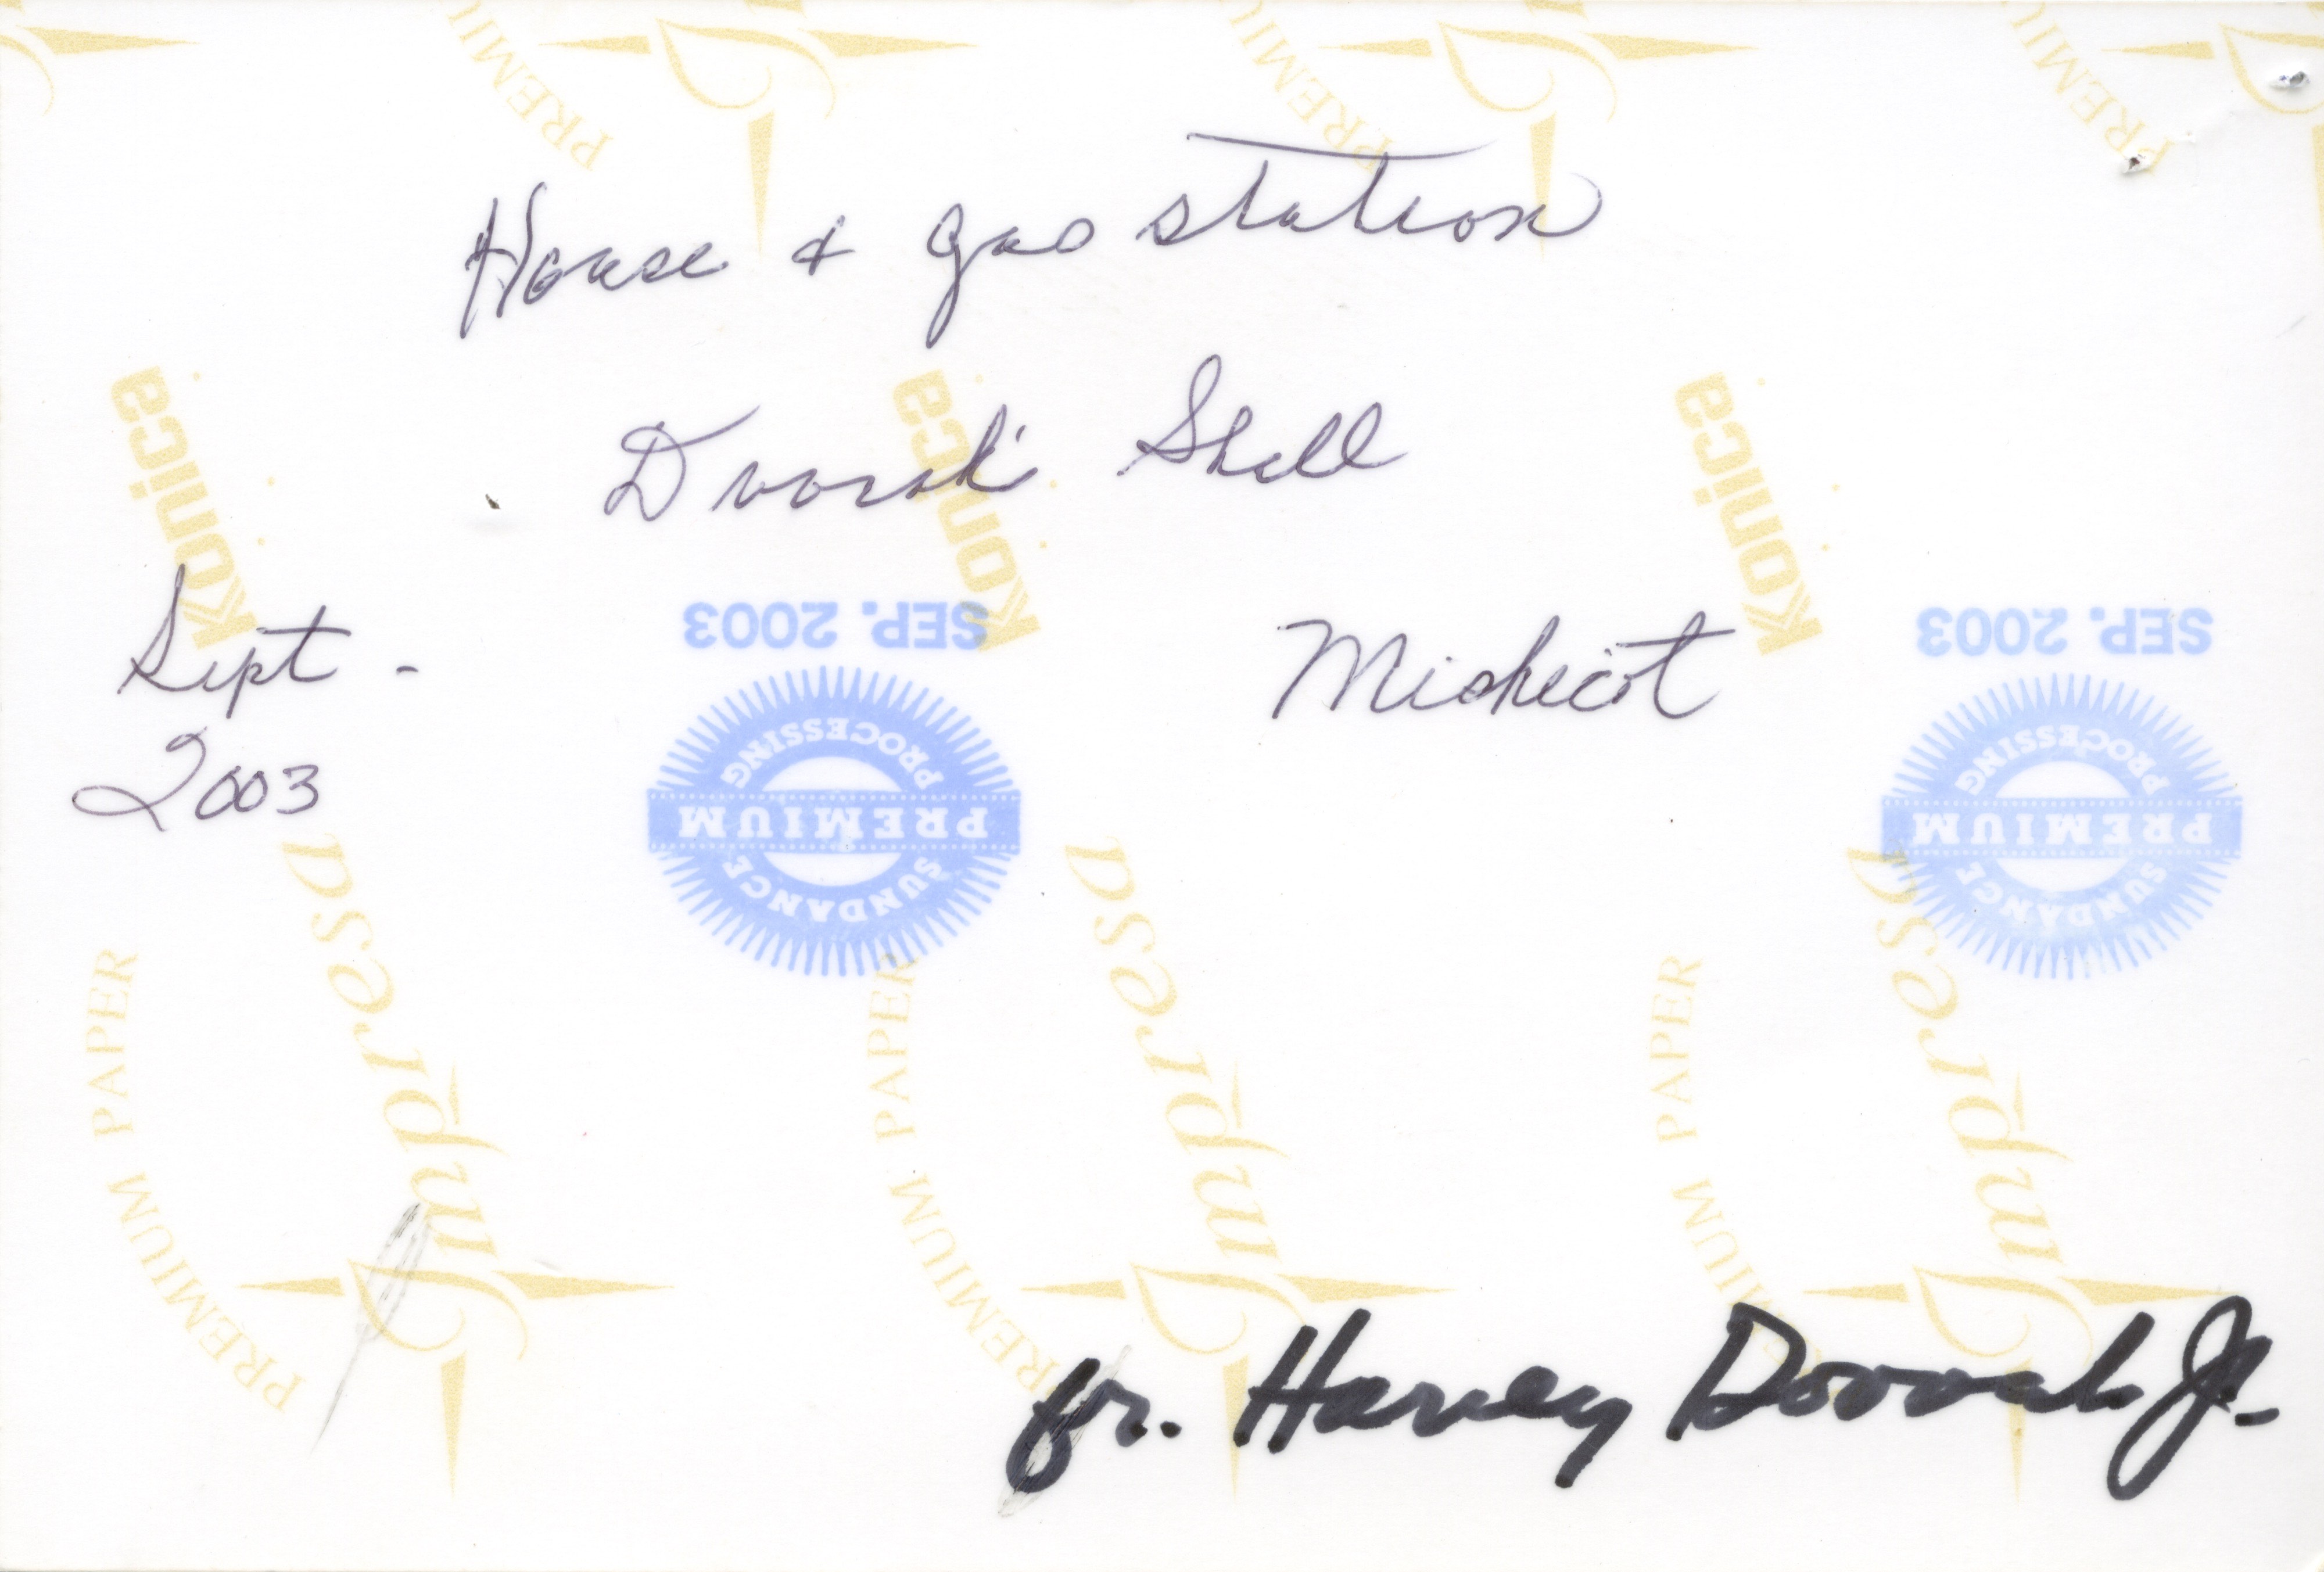 House & gas station
Dvorak Shell
Mishicot
Sept -
2003
fr. Harvey Dvorak Jr.
SEP. 2003
SUNDANCE
PREMIUM
PROCESSING
SEP. 2003
SUNDANCE
PREMIUM
PROCESSING
Konica
Konica
Konica
Impresa
Impresa
Impresa
PREMIUM PAPER
PREMIUM PAPER
PREMIUM PAPER
PREMIU
PREMIU
PREMIU